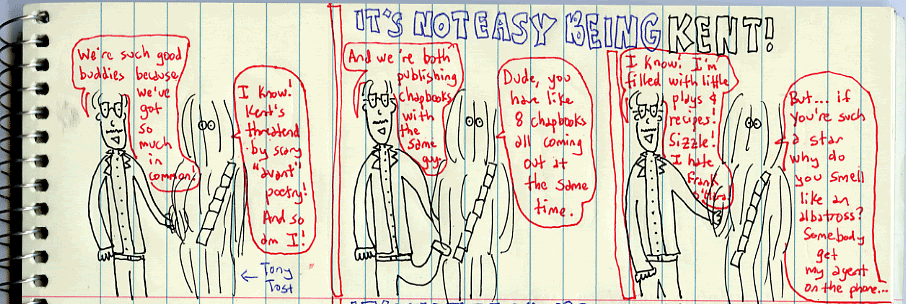 IT'S NOT EASY BEING KENT!
We're such good
buddies because
we've
got
so
much
in
common.
I know!
Kent's
threatend
by scary
"avant"
poetry!
And so
am I!
← Tony
Tost
And we're both
publishing
chapbooks
with
the
same
guy.
Dude, you
have like
8 chapbooks
all coming
out at
the same
time.
I know! I'm
filled with little
plays &
recipes!
Sizzle!
I hate
Frank
O'Hara.
But... if
you're such
a star
why do
you smell
like an
albatross?
Somebody
get
my agent
on the phone...